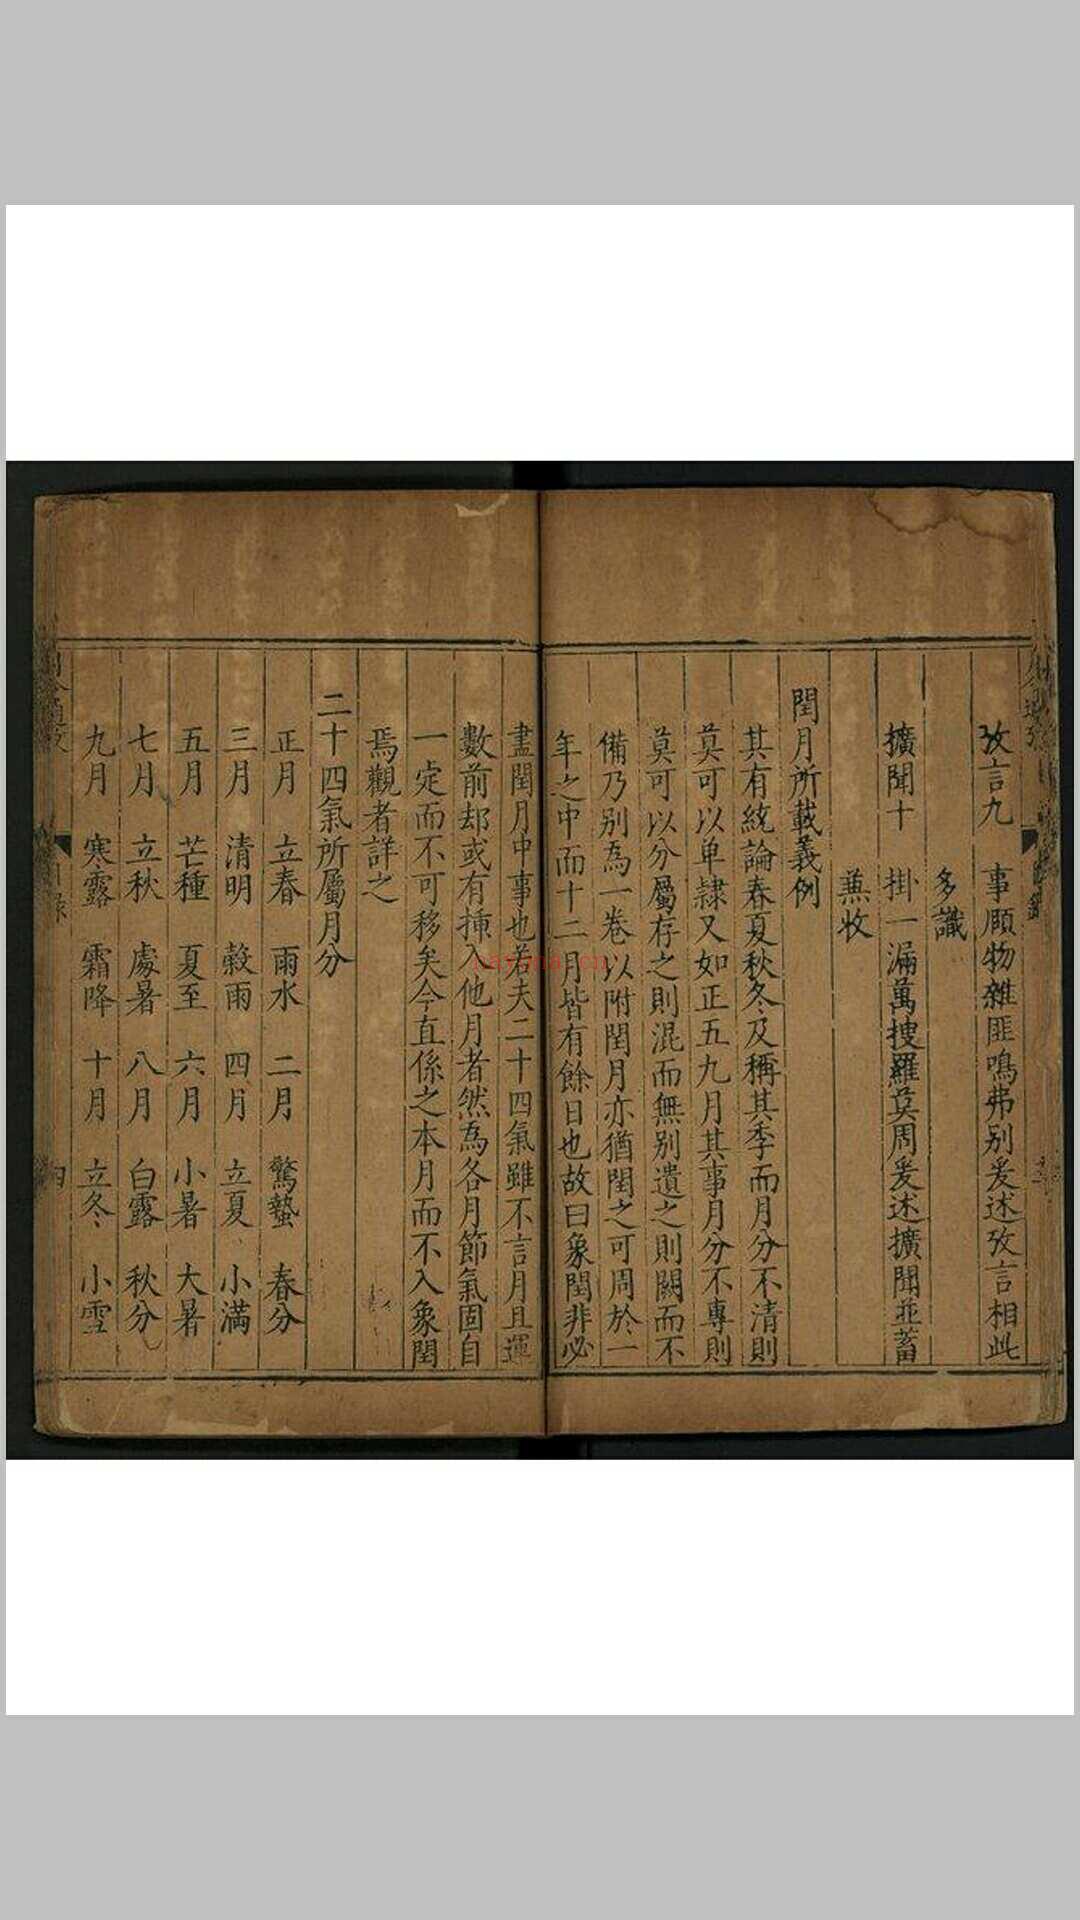 攷言九　事賾物雜匪鳴弗别爰述攷言相此
多識
擴聞十　掛一漏萬搜羅莫周爰述擴聞並蓄
蒹收
閏月所載義例
其有統論春夏秋冬及稱其季而月分不清則
莫可以单隷又如正五九月其事月分不專則
莫可以分屬存之則混而無别遺之則闕而不
備乃别為一卷以附閏月亦猶閏之可周於一
年之中而十二月皆有餘日也故曰象閏非必
盡閏月中事也若夫二十四氣雖不言月且運
數前却或有揷入他月者然為各月節氣固自
一定而不可移矣今直係之本月而不入象閏
焉觀者詳之
二十四氣所屬月分
正月　立春　雨水　二月　驚蟄　春分
三月　清明　穀雨　四月　立夏　小滿
五月　芒種　夏至　六月　小暑　大暑
七月　立秋　處暑　八月　白露　秋分
九月　寒露　霜降　十月　立冬　小雪